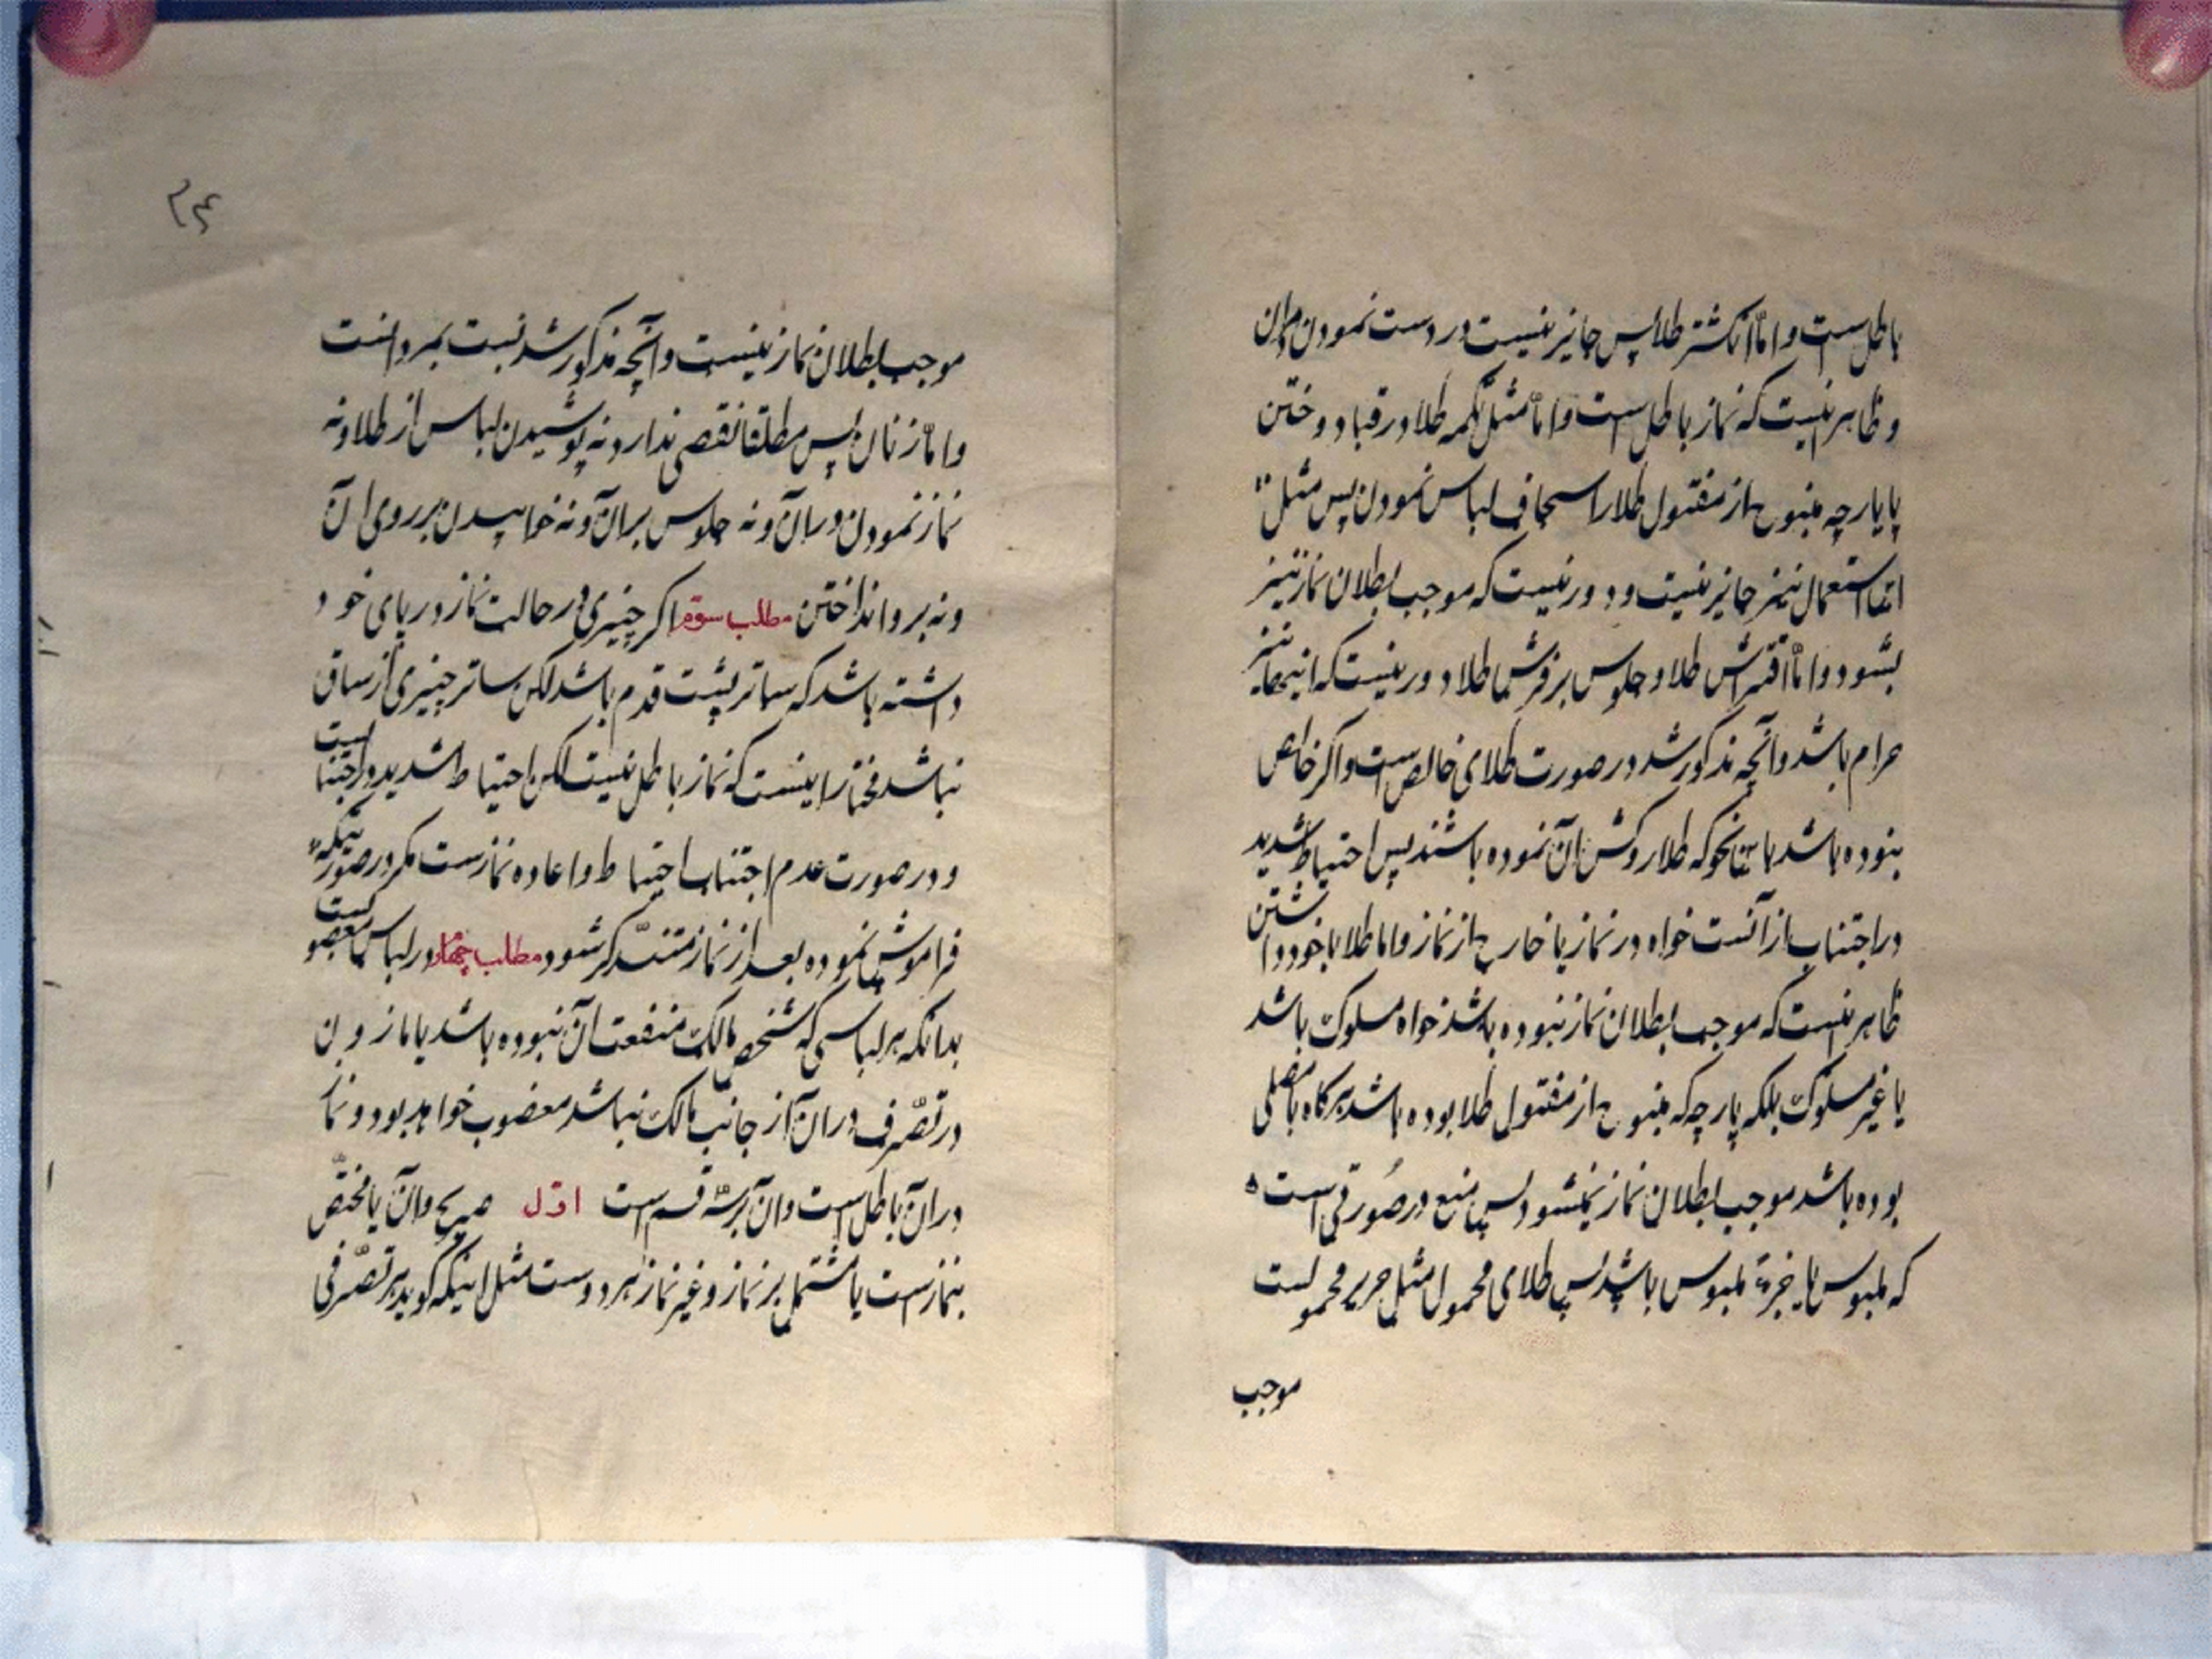 باطل است و اما انگشتر طلا پس جایز نیست در دست نمودن
و ظاهر اینست که نماز باطل است و امّا مثل تکمه طلا در قبا دوختن
یا پارچه منسوج از مفتول طلا را سجاف لباس نمودن پس مثل
استعمال نیز جایز نیست و دور نیست که موجب بطلان نماز نیز
بشود و امّا افتراش طلا و جلوس بر فرش طلا دور نیست که اینها نیز
حرام باشد و آنچه مذکور شد در صورت طلای خالص است و اگر خالص
نبوده باشد باینحو که طلا روکش آن نموده باشند پس احتیاط شدید
در اجتناب از آنست خواه در نماز یا خارج از نماز و اما طلا با خود داشتن
ظاهر اینست که موجب بطلان نماز نبوده باشد خواه مسلوک باشد
یا غیر مسلوک بلکه پارچه که منسوج از مفتول طلا بوده باشد هرگاه با مصلی
بوده باشد موجب بطلان نماز نمیشود پس منع در صورتی است
که ملبوس یا جزء ملبوس باشد پس طلای محمول مثل حریر محمولست
موجب
۲۴
موجب بطلان نماز نیست و آنچه مذکور شد نسبت بمردانست
و امّا زنان پس مطلقا نقصی ندارد نه پوشیدن لباس از طلا و نه
نماز نمودن در آن و نه جلوس بر آن و نه خوابیدن بر روی آن
و نه بر او انداختن مطلب سوّم اگر چیزی در حالت نماز در پای خود
داشته باشد که ساتر پشت قدم باشد لکن ساتر چیزی از ساق
نباشد مختار اینست که نماز باطل نیست لکن احتیاط شدید در اجتنابست
و در صورت عدم اجتناب احتیاط و اعاده نمازست مگر در صورتیکه
فراموش نموده بعد از نماز متذکر شود مطلب چهارم در لباس مغصوبست
بدانکه هر لباسی که شخص مالک منفعت آن نبوده باشد یا ماذون
در تصرّف در آن از جانب مالک نباشد مغصوب خواهد بود و نماز
در آن باطل است و آن بر سه قسم است اوّل صریح و آن یا مختصّ
بنماز است یا مشتمل بر نماز و غیر نماز هر دو است مثل اینکه گوید هر تصّرفی